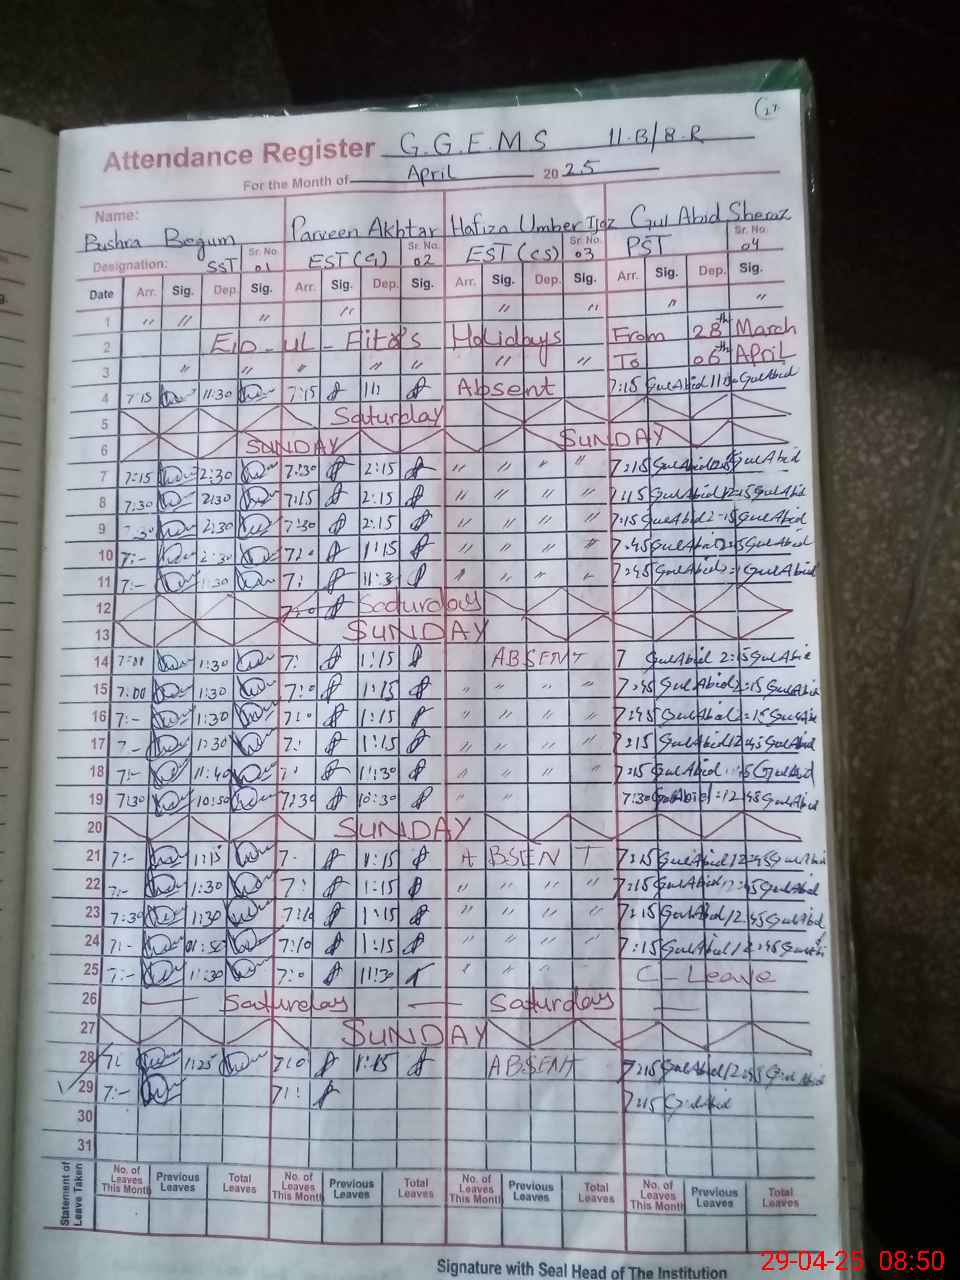 Attendance Register G.G.E.M.S 11-B/8-R
For the Month of April 2025
Name:
Bushra Begum Parveen Akhtar Hafiza Umber Ijaz Gul Abid Sheraz
Designation: SST Sr. No. 01 EST (G) Sr. No. 02 EST (CS) Sr. No. 03 PST Sr. No. 04
Date Arr. Sig. Dep. Sig. Arr. Sig. Dep. Sig. Arr. Sig. Dep. Sig. Arr. Sig. Dep. Sig.
1 " " " " " " " "
2 Holidays From 28th March
3 " " " " " " " " To 06th April
4 7:15 11:30 7:15 Absent 7:15 Gul Abid Gul Abid
5 Saturday
6 SUNDAY SUNDAY
7 7:15 2:30 7:30 2:15 " " " " 7:15 Gul Abid Gul Abid
8 7:30 2:30 7:15 2:15 " " " " 7:15 Gul Abid 12:15 Gul Abid
9 7:30 2:30 7:30 2:15 " " " " 7:15 Gul Abid 2:15 Gul Abid
10 7:- 2:30 1:15 " " " " 7:45 Gul Abid Gul Abid
11 7:- 1:30 7: 11:3 " " " " 7:45 Gul Abid Gul Abid
12 Saturday
13 SUNDAY
14 7:00 1:30 7: 1:15 ABSENT 7 Gul Abid 2:15 Gul Abid
15 7:00 1:30 7:0 1:15 " " " " 7:45 Gul Abid 2:15 Gul Abid
16 7:- 1:30 1:15 " " " " 7:45 Gul Abid 2:15 Gul Abid
17 7- 1:30 7: 1:15 " " " " 7:15 Gul Abid 12:45 Gul Abid
18 7:- 11:40 7: 11:30 " " " " 7:15 Gul Abid Gul Abid
19 7:30 10:50 7:30 10:30 " " 7:30 Gul Abid 12:45 Gul Abid
20 SUNDAY
21 7:- 1:15 7- 1:15 ABSENT 7:15 Gul Abid 12:45 Gul Abid
22 7:- 1:30 7: 1:15 " " " " 7:15 Gul Abid 12:45 Gul Abid
23 7:30 1:30 7:10 1:15 " " " " 7:15 Gul Abid 12:45 Gul Abid
24 7:- 01:50 7:10 1:15 " " " " 7:15 Gul Abid 12:45
25 7:- 11:30 7:0 11:30 " " " " C-Leave
26 Saturday Saturday
27 SUNDAY
28 1:25 7:0 1:15 ABSENT 7:15 Gul Abid 12:45 Gul Abid
29 7:- 7: 7:15 Gul Abid
30
31
Statement of Leave Taken
No. of Leaves This Month Previous Leaves Total Leaves No. of Leaves This Month Previous Leaves Total Leaves No. of Leaves This Month Previous Leaves Total Leaves No. of Leaves This Month Previous Leaves Total Leaves
Signature with Seal Head of The Institution
29-04-25 08:50